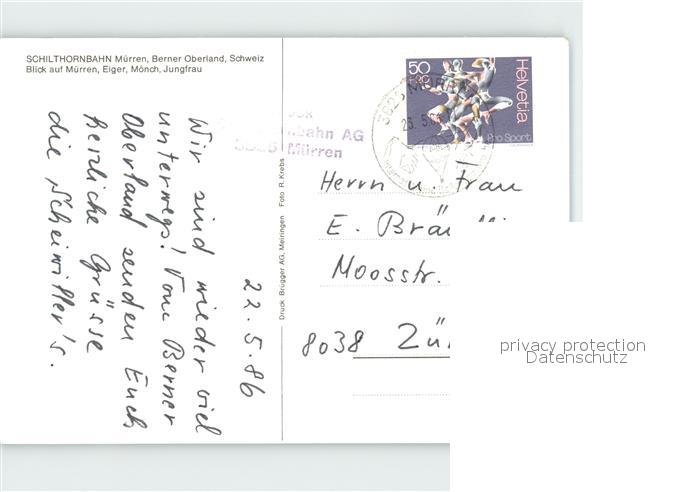 SCHILTHORNBAHN Mürren, Berner Oberland, Schweiz
Blick auf Mürren, Eiger, Mönch, Jungfrau
22.5.86
Wir sind wieder viel
unterwegs! Vom Berner
Oberland senden Euch
herzliche Grüsse
die Scheiwiller's.
Druck Brügger AG, Meiringen Foto R. Krebs
bahn AG
3825 Mürren
50
+20
Helvetia
Pro Sport
3825 MÜRREN
Herrn u. Frau
E. Brä
Moosstr.
8038 Zü
privacy protection
Datenschutz